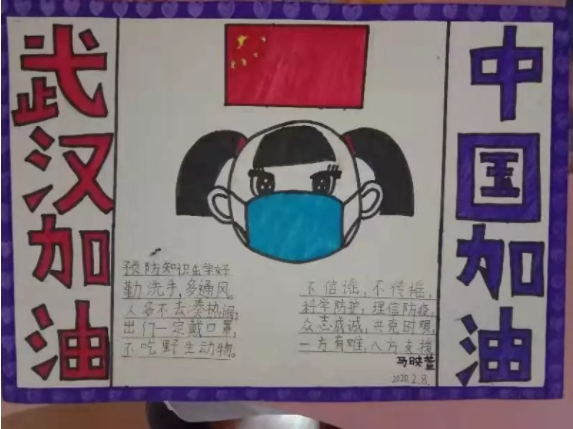 武汉加油
中国加油
预防知识要学好
勤洗手,多通风,
人多不去凑热闹,
出门一定戴口罩,
不吃野生动物。
不信谣,不传谣,
科学防护,理信防疫,
众志成诚,共克时艰,
一方有难,八方支援
马映萱
2020.2.8